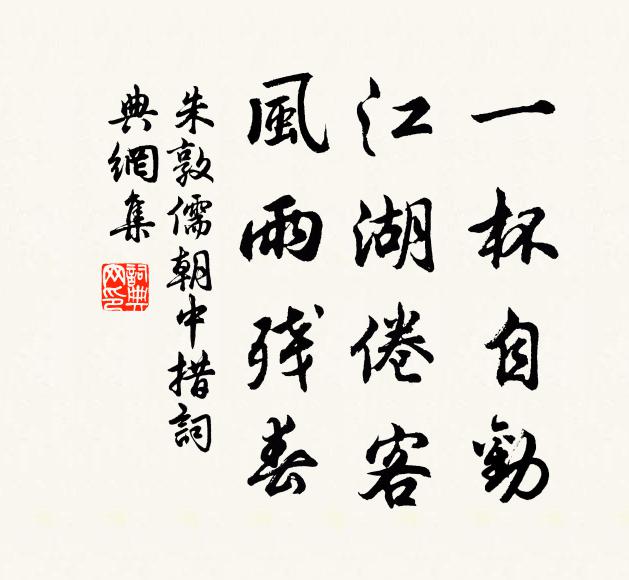 一杯自勸
江湖倦客
風雨殘春
朱敦儒朝中措詞
典網集
詞典网印